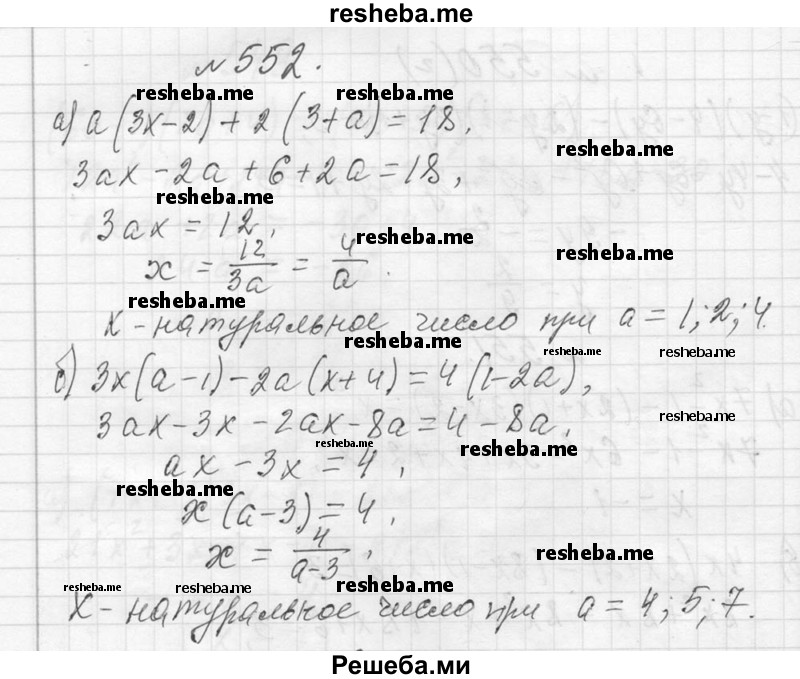 resheba.me
№552.
resheba.me resheba.me
а) a(3x-2)+2(3+a)=18,
resheba.me
3ax-2a+6+2a=18,
resheba.me
3ax=12,
resheba.me
x = 12/3a = 4/a.
resheba.me
resheba.me
x-натуральное число при a=1;2;4.
resheba.me resheba.me resheba.me
б) 3x(a-1)-2a(x+4)=4(1-2a),
3ax-3x-2ax-8a=4-8a,
resheba.me
resheba.me resheba.me
ax-3x=4,
resheba.me
x(a-3)=4,
x = 4/a-3,
resheba.me
resheba.me resheba.me resheba.me
x-натуральное число при a=4;5;7.
Решеба.ми